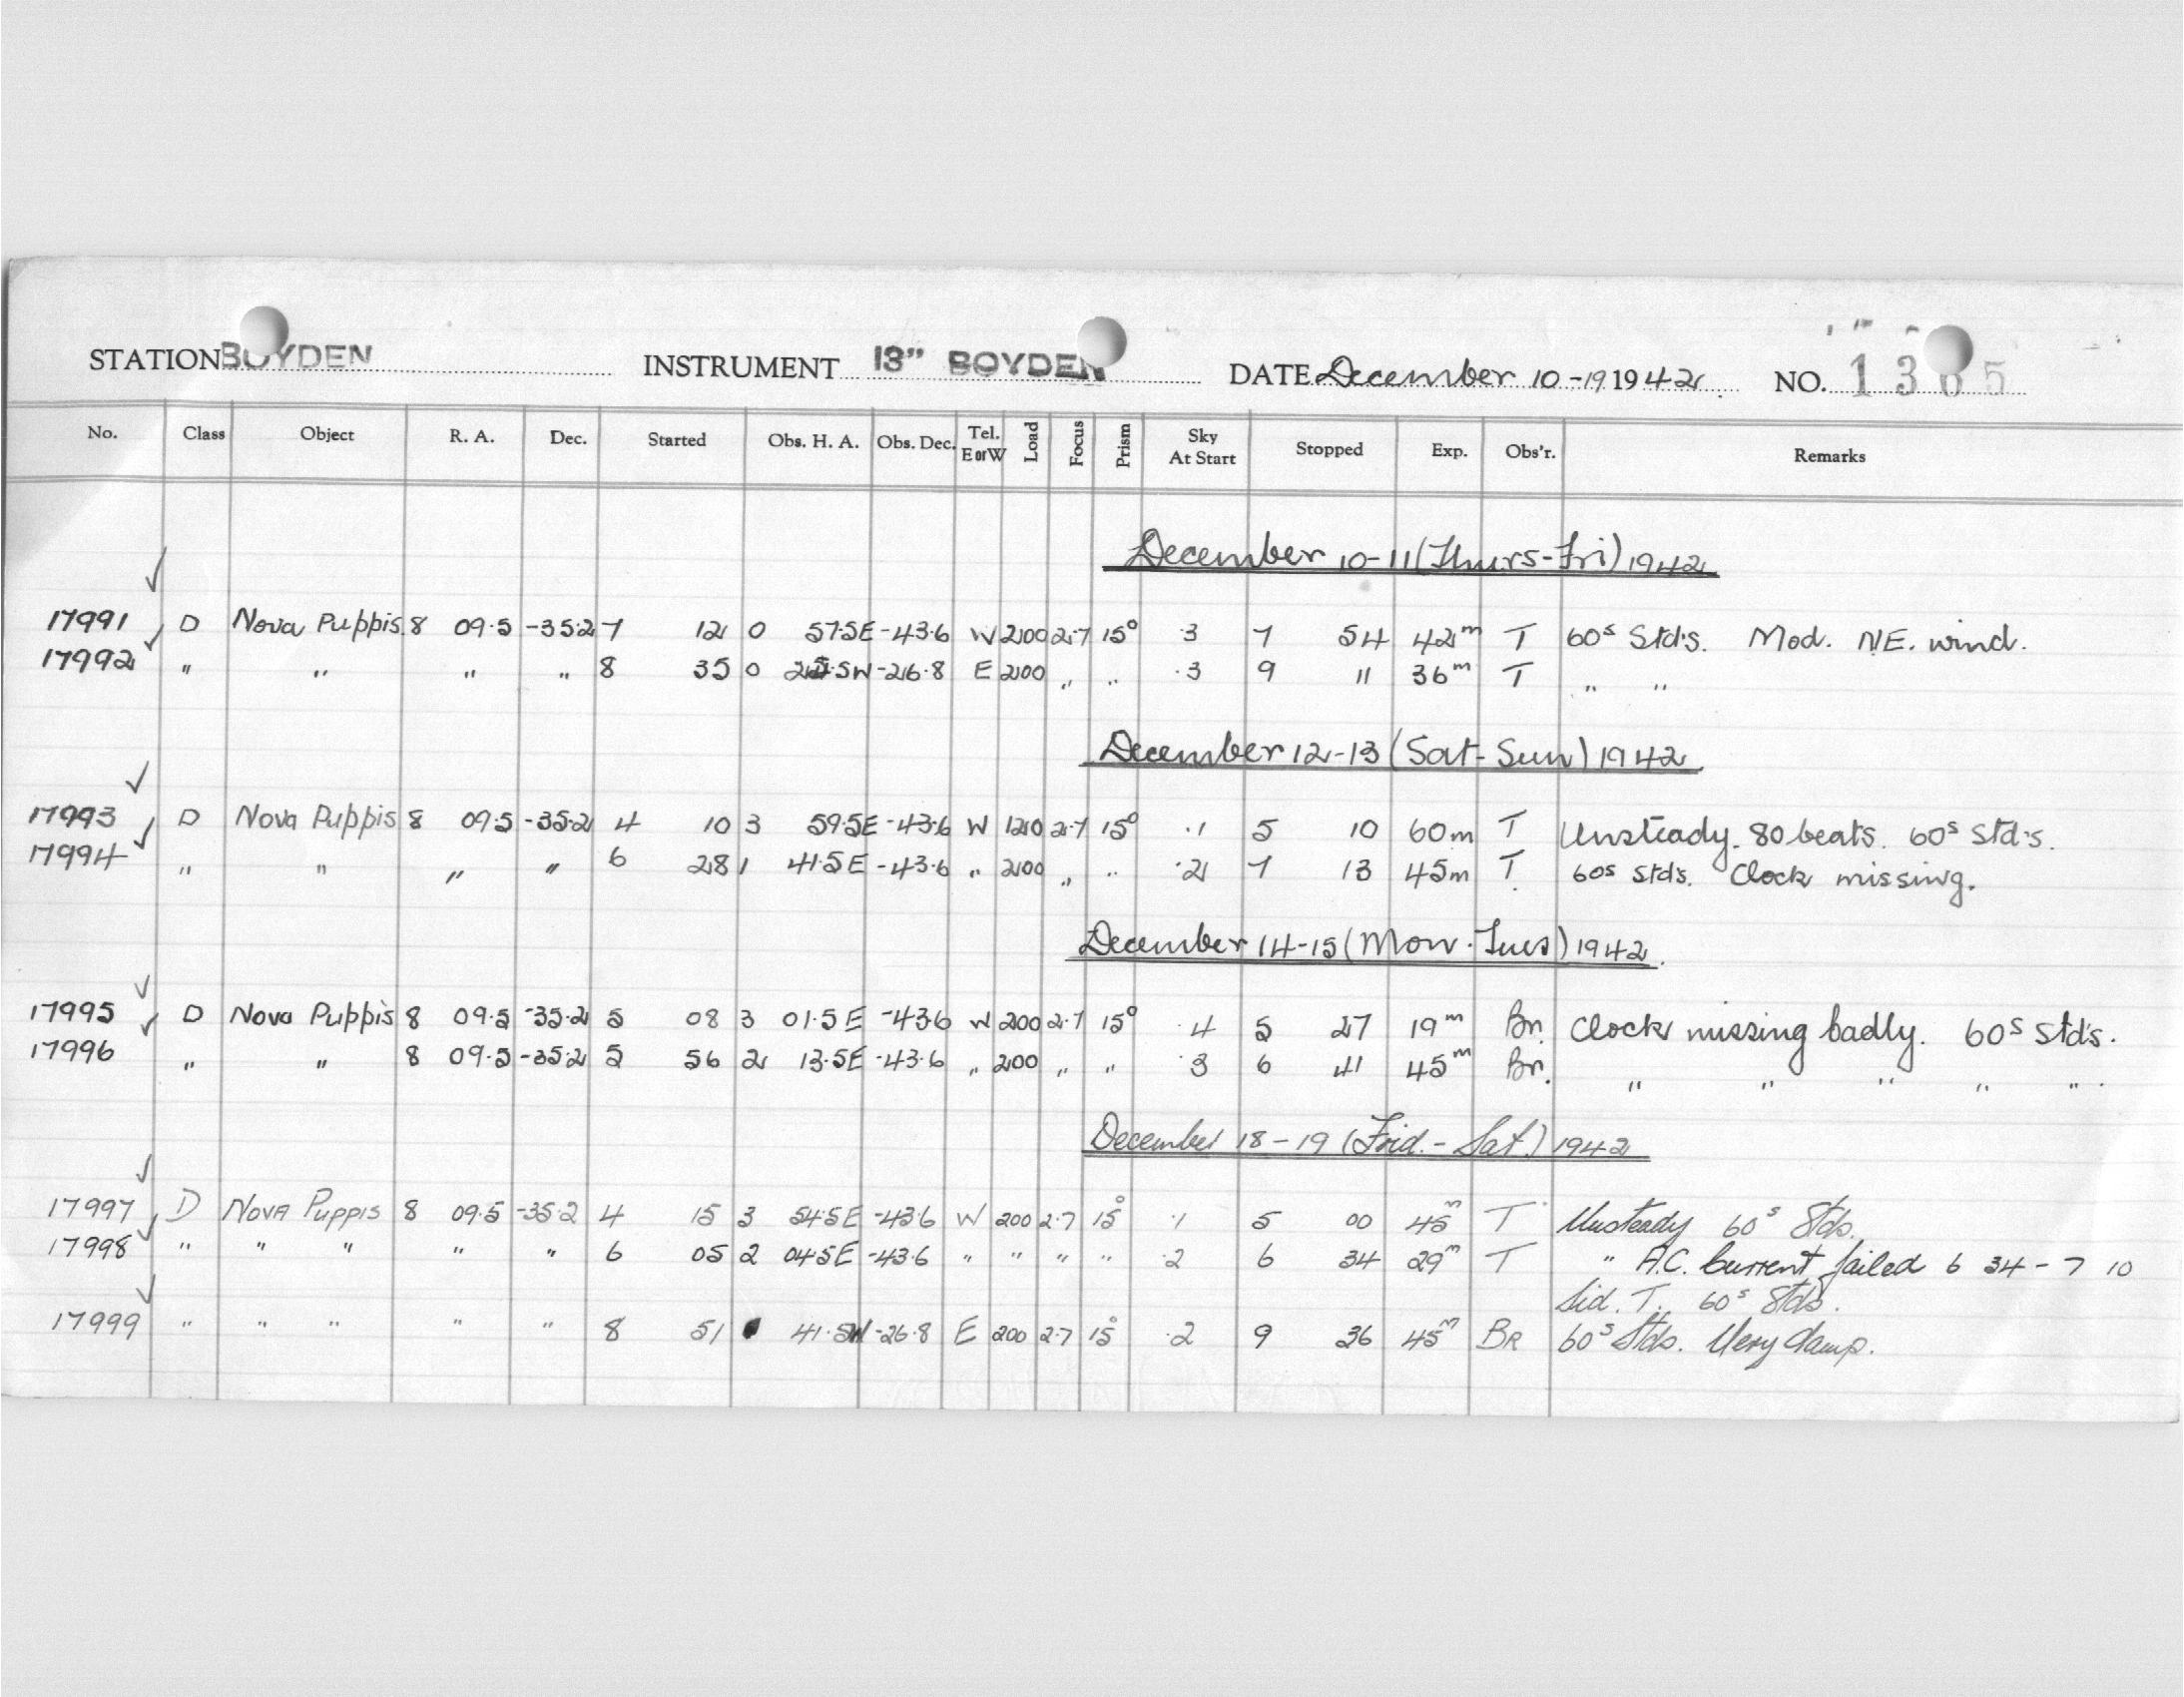 STATION BOYDEN INSTRUMENT 13" BOYDEN DATE December 10-19 1942 NO. 1365
No. Class Object R. A. Dec. Started Obs. H. A. Obs. Dec. Tel. E or W Load Focus Prism Sky At Start Stopped Exp. Obs'r. Remarks
December 10-11 (Thurs-Fri) 1942
17991 D Nova Puppis 8 09.5 -35.2 7 12 0 57.5E -43.6 W 200 2.7 15° .3 7 54 42m T 60s Std's. Mod. N.E. wind.
17992 " " " " 8 35 0 .5W -26.8 E 200 " " .3 9 11 36m T " "
December 12-13 (Sat-Sun) 1942
17993 D Nova Puppis 8 09.5 -35.2 4 10 3 59.5E -43.6 W 120 2.7 15° .1 5 10 60m T Unsteady. 80 beats. 60s Std's.
17994 " " " " 6 28 1 41.5E -43.6 " 200 " " .2 7 13 45m T 60s Std's. Clock missing.
December 14-15 (Mon-Tues) 1942.
17995 D Nova Puppis 8 09.5 -35.2 5 08 3 01.5E -43.6 W 200 2.7 15° .4 5 27 19m Br. Clock missing badly. 60s Std's.
17996 " " 8 09.5 -35.2 5 56 2 13.5E -43.6 " 200 " " .3 6 41 45m Br. " " " " "
December 18-19 (Frid.-Sat.) 1942
17997 D Nova Puppis 8 09.5 -35.2 4 15 3 54.5E -43.6 W 200 2.7 15° .1 5 00 45m T Unsteady 60s Stds.
17998 " " " " " 6 05 2 04.5E -43.6 " " " " .2 6 34 29m T " A.C. Current failed 6 34 - 7 10
Sid. T. 60s Stds.
17999 " " " " " 8 51 41.5W -26.8 E 200 2.7 15° .2 9 36 45m BR 60s Stds. Very damp.